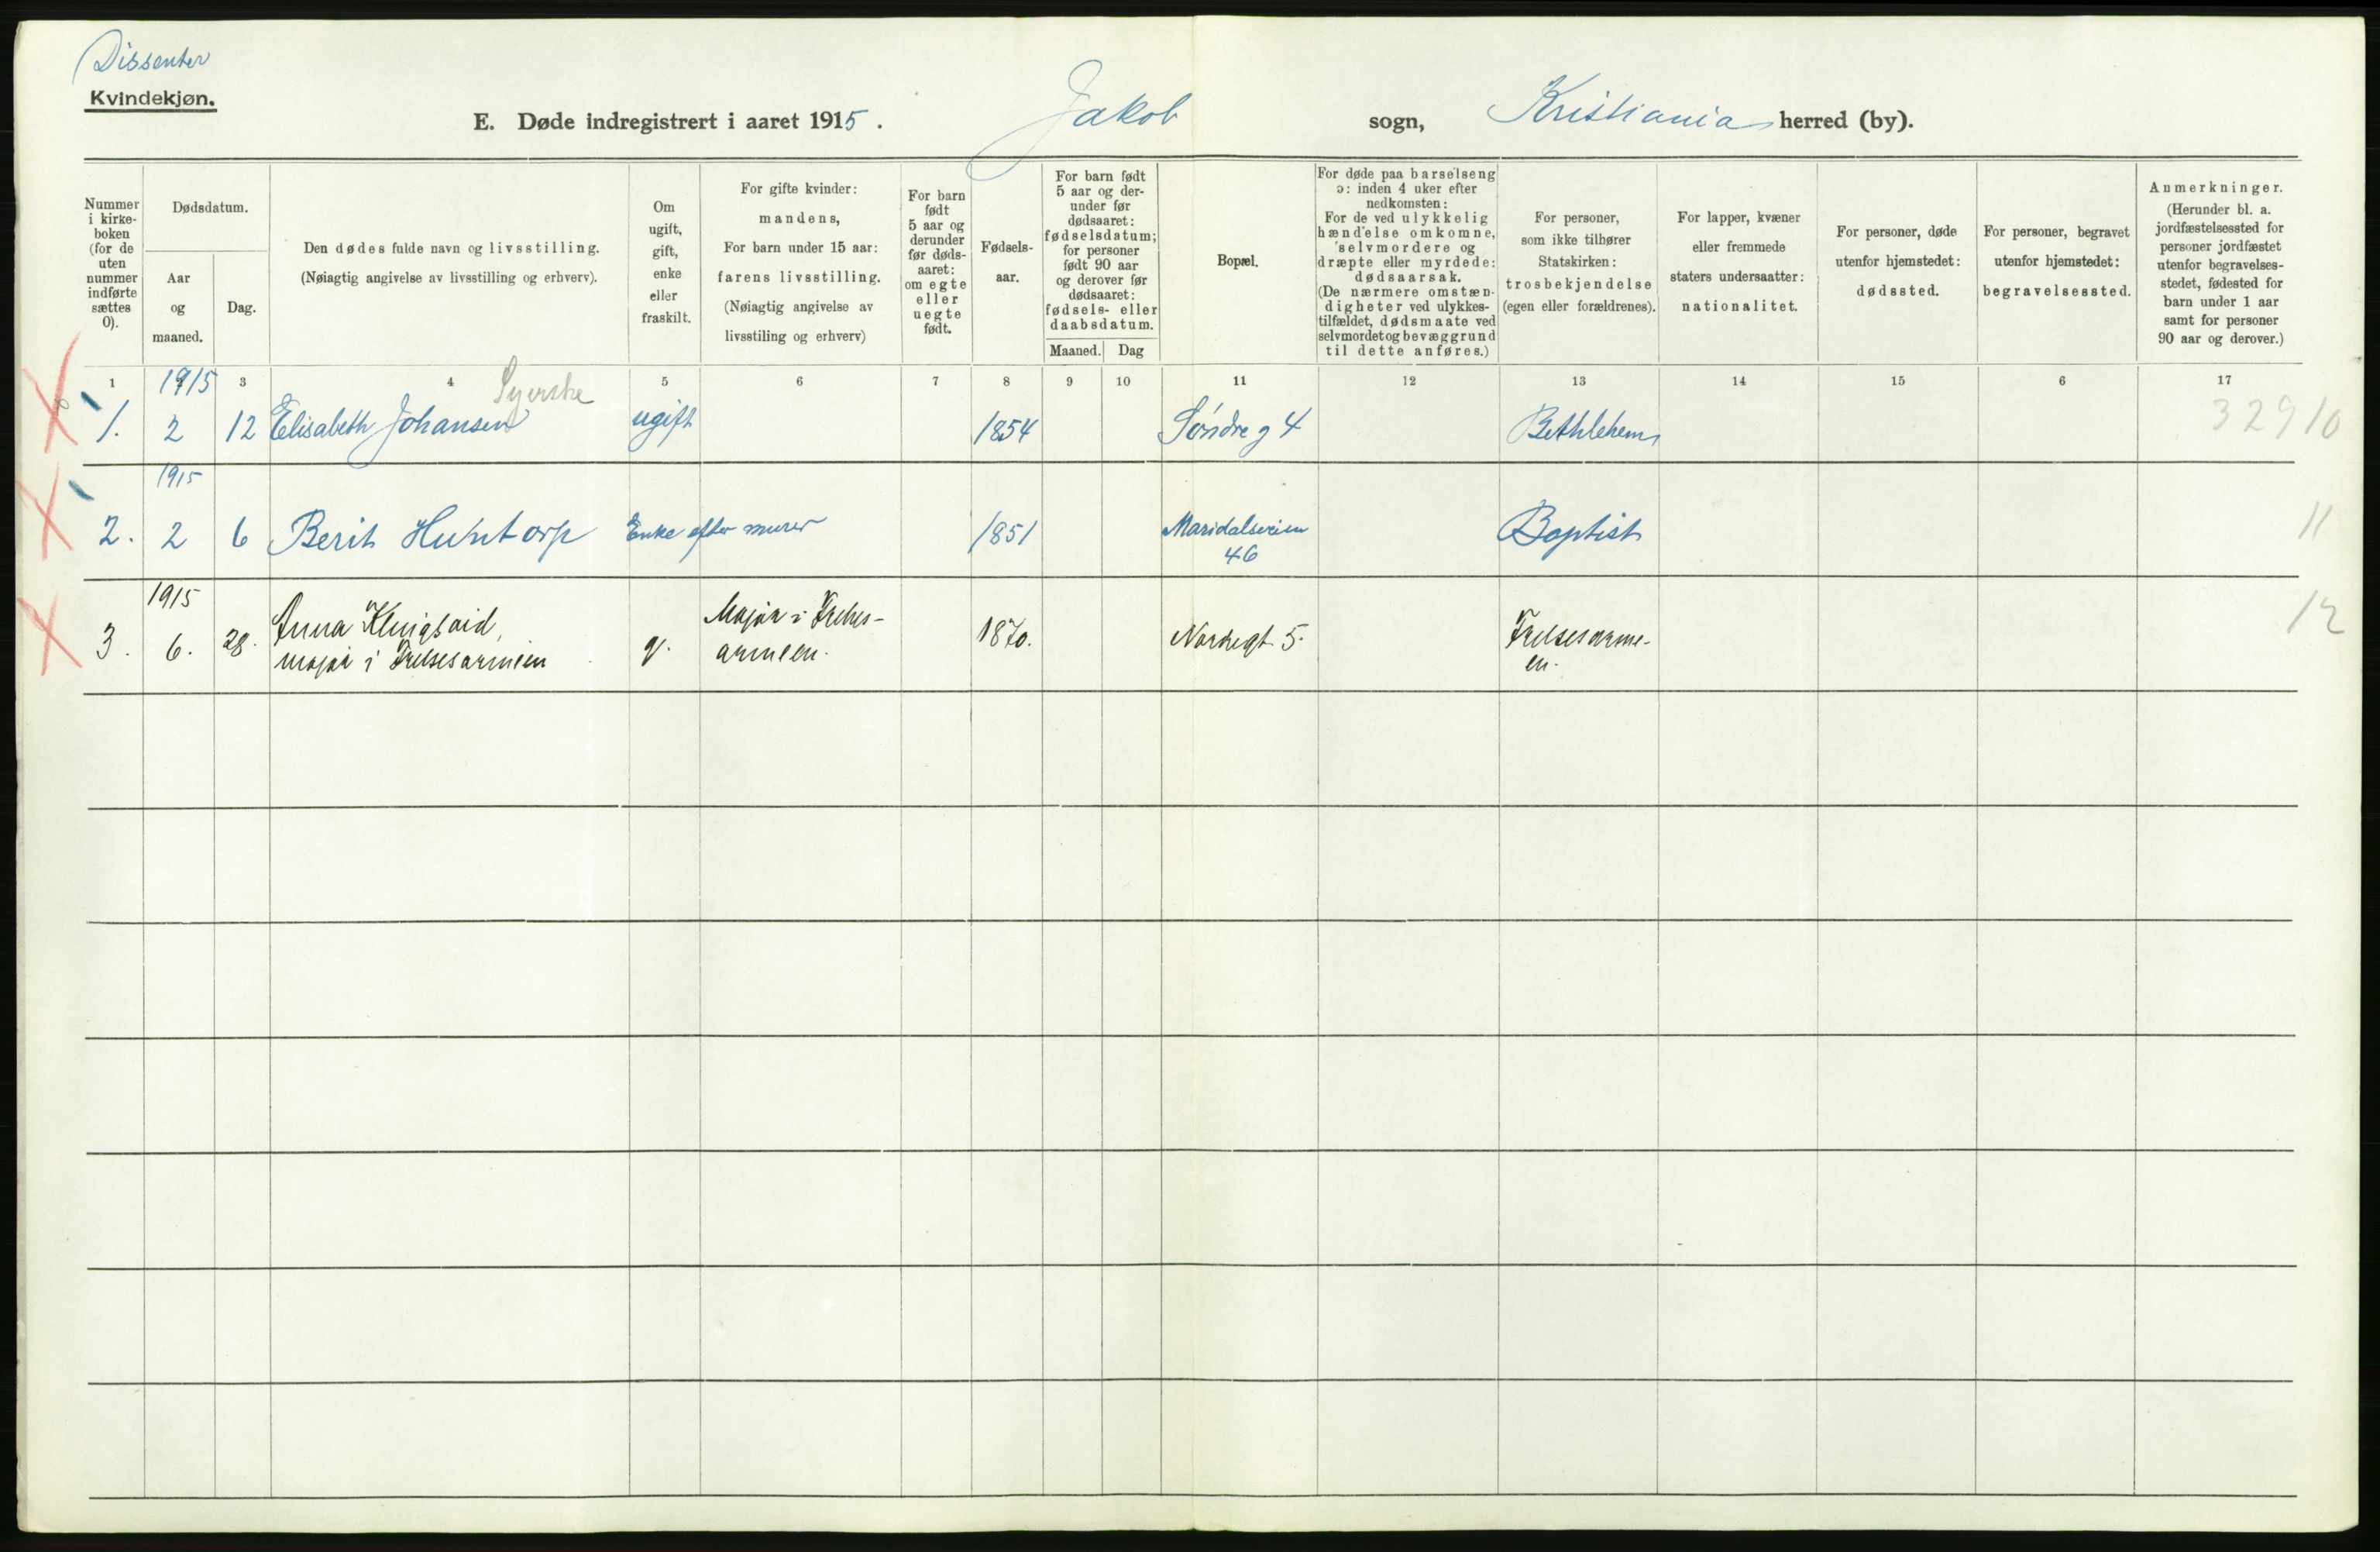 Dissenter
Kvindekjøn.
E. Døde indregistrert i aaret 1915. Jakob sogn, Kristiania herred (by).
Nummer i kirke-boken (for de uten nummer indførte sættes 0).
Dødsdatum.
Aar og maaned.
Dag.
Den dødes fulde navn og livsstilling.
(Nøiagtig angivelse av livsstilling og erhverv).
Om ugift, gift, enke eller fraskilt.
For gifte kvinder:
mandens,
For barn under 15 aar:
farens livsstilling.
(Nøiagtig angivelse av
livsstiling og erhverv)
For barn født 5 aar og derunder før døds-aaret: om egte eller uegte født.
Fødsels-aar.
For barn født 5 aar og der-under før dødsaaret: fødselsdatum; for personer født 90 aar og derover før dødsaaret: fødsels- eller daabsdatum.
Maaned. Dag
Bopæl.
For døde paa barselseng
ɔ: inden 4 uker efter
nedkomsten:
For de ved ulykkelig
hændelse omkomne,
selvmordere og
dræpte eller myrdede:
dødsaarsak.
(De nærmere omstæn-
digheter ved ulykkes-
tilfældet, dødsmaate ved
selvmord et og bevæggrund
til dette anføres.)
For personer,
som ikke tilhører
Statskirken:
trosbekjendelse
(egen eller forældrenes).
For lapper, kvæner
eller fremmede
staters undersaatter:
nationalitet.
For personer, døde
utenfor hjemstedet:
dødssted.
For personer, begravet
utenfor hjemstedet:
begravelsessted.
Anmerkninger.
(Herunder bl. a.
jordfæstelsessted for
personer jordfæstet
utenfor begravelses-
stedet, fødested for
barn under 1 aar
samt for personer
90 aar og derover.)
1 3 4 5 6 7 8 9 10 11 12 13 14 15 6 17
1915 Syerske
1. 2 12 Elisabeth Johansen ugift 1854 Søndre g 4 Bethlehem 32910
1915
2. 2 6 Berit Huhntorp Enke efter murer 1851 Maridalsveien 46 Baptist 11
1915
3. 6. 28. Anna
major i Frelsesarmeen g. Major i Frelses-
armeen. 1870. Norbygt 5. Frelsesarme-
en. 12